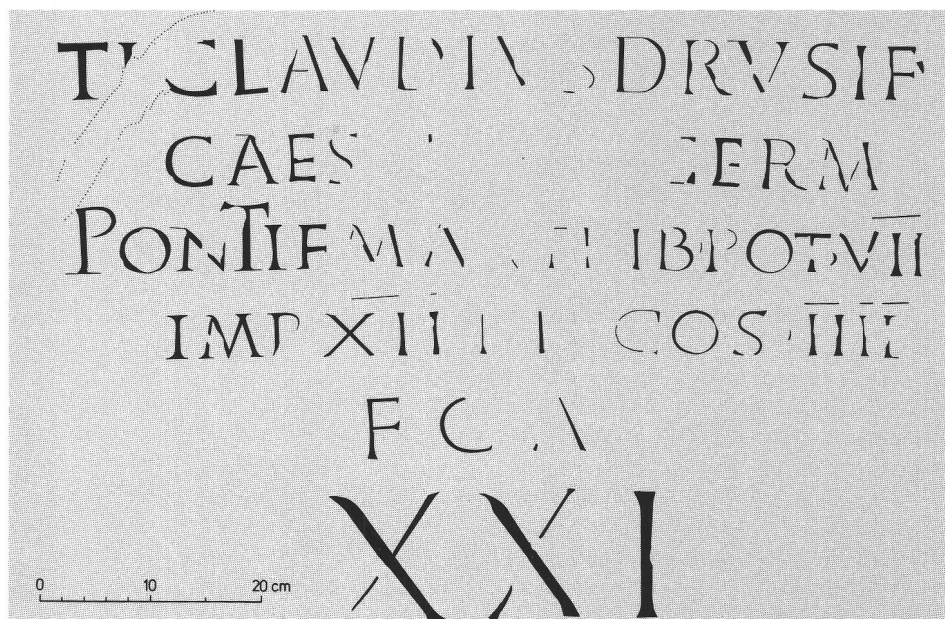 TI CLAVDIVS DRVSI F
CAES GERM
PONTIF MAX TRIB POT VII
IMP XIIII COS IIII
F C A
XXI
0 10 20 cm